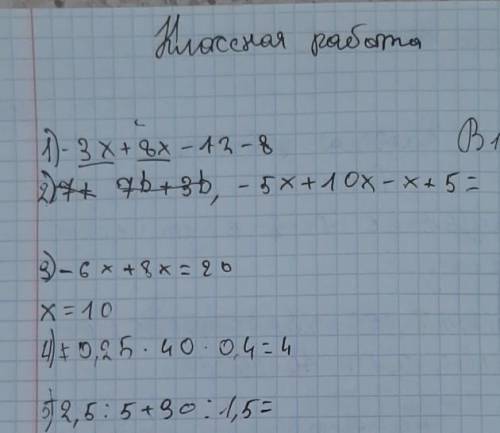 Классная работа
В1
1) - 3x + 8x - 13 - 8
2) 7+ 7b + 3b, - 5x + 10x - x + 5 =
3) - 6x + 8x = 20
x = 10
4) + 0,25 · 40 · 0,4 = 4
5) 2,5 : 5 + 30 : 1,5 =